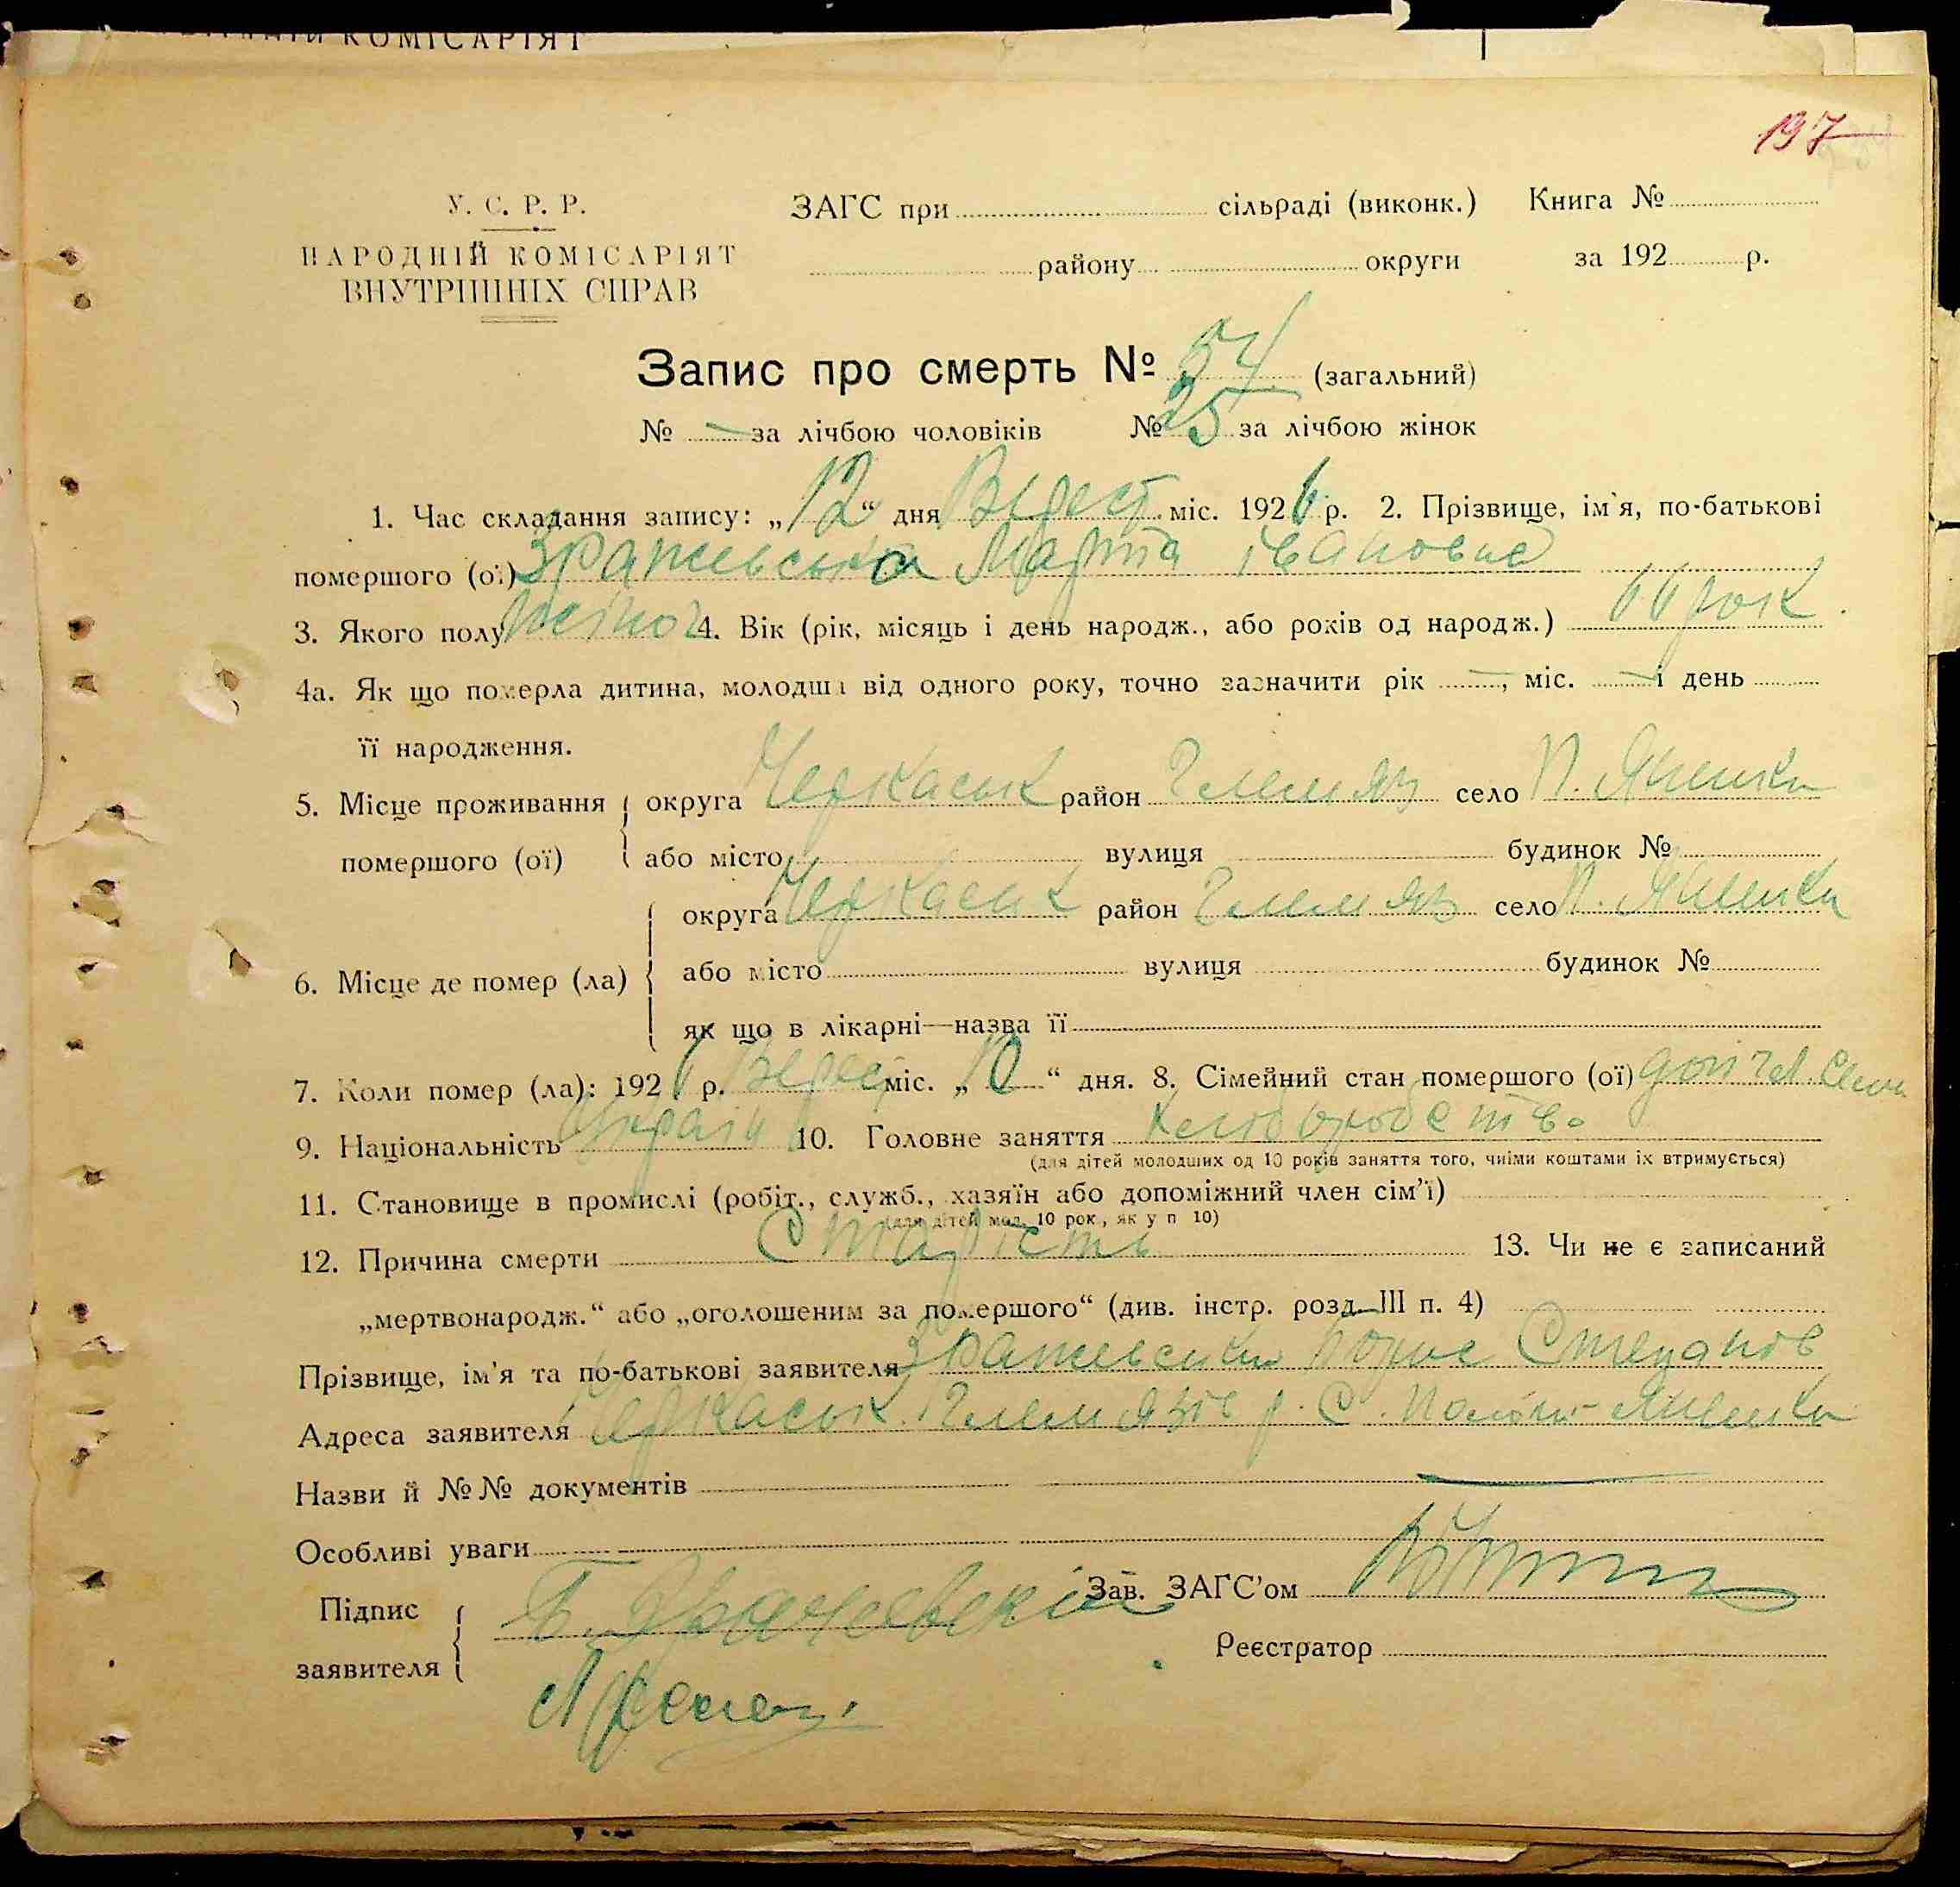 КОМІСАРІЯТ
197
У. С. Р. Р.
НАРОДНІЙ КОМІСАРІЯТ
ВНУТРІШНІХ СПРАВ
ЗАГС при сільраді (виконк.) Книга №
району округи за 192 р.
Запис про смерть № 54 (загальний)
№ — за лічбою чоловіків № 25 за лічбою жінок
1. Час складання запису: „12“ дня Верест міс. 1926 р. 2. Прізвище, ім'я, по-батькові
помершого (ої) Зражевська Марта Івановна
3. Якого полу жіноч 4. Вік (рік, місяць і день народж., або років од народж.) 66 рок
4а. Як що померла дитина, молодша від одного року, точно зазначити рік —, міс. — і день
її народження.
5. Місце проживання округа Черкаськ район Гельмяз село П. Яненки
помершого (ої) або місто вулиця будинок №
округа Черкаськ район Гельмяз село П. Яненки
6. Місце де помер (ла) або місто вулиця будинок №
як що в лікарні—назва її
7. Коли помер (ла): 1926 р. Верес міс. „10“ дня. 8. Сімейний стан помершого (ої)
9. Національність Україн 10. Головне заняття хліборобство
(для дітей молодших од 10 років заняття того, чиїми коштами їх втримується)
11. Становище в промислі (робіт., служб., хазяїн або допоміжний член сім'ї)
(для дітей мол. 10 рок., як у п 10)
12. Причина смерти Старість 13. Чи не є записаний
„мертвонародж.“ або „оголошеним за помершого“ (див. інстр. розд. III п. 4)
Прізвище, ім'я та по-батькові заявителя Зражевський Борис Степанов
Адреса заявителя Черкаськ. Гельмязів р. С. Яненки
Назви й №№ документів
Особливі уваги
Підпис Б. Зражевскій Зав. ЗАГС'ом
заявителя Реєстратор